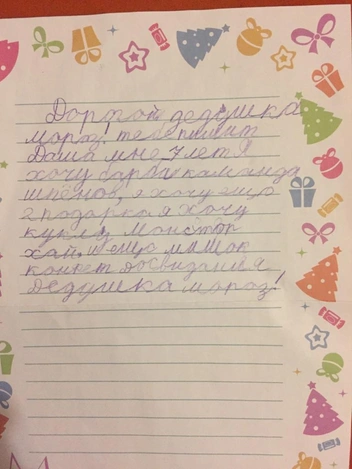 Дорогой дедушка
мороз! тебе пишит
Даша мне 7 лет я
хочу барби каманда
шпёнов, я хочу ещо
2 подарка я хочу
куклу монстер
хай, и ещо мишок
конкет досвидания
Дедушка мороз!